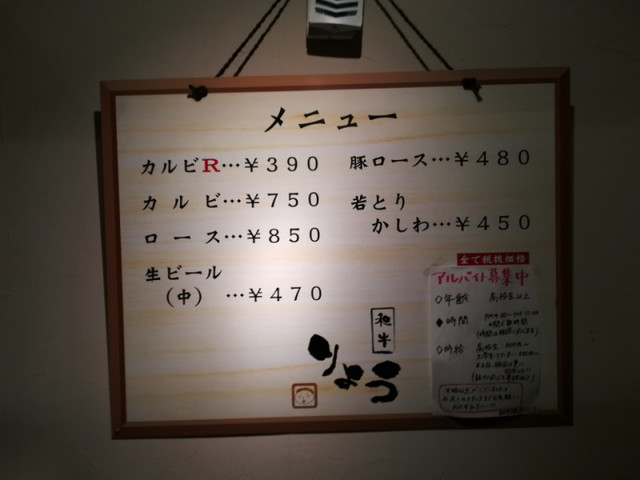 メニュー
カルビR…¥390
カルビ…¥750
ロース…¥850
生ビール
(中) …¥470
豚ロース…¥480
若とり
かしわ…¥450
全て税抜価格
和牛
りょう
アルバイト募集中
◇年齢 高校生以上
◆時間
◇時給 高校生